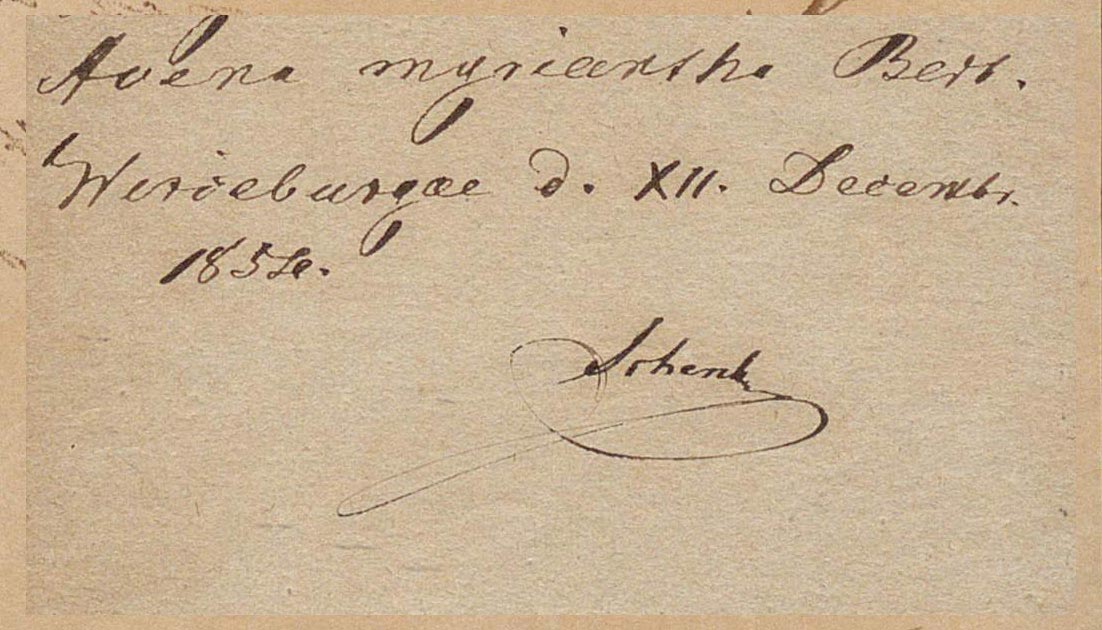 Avena myriantha Bert.
Wirceburgae d. XII. Decembr.
1854.
Schenk